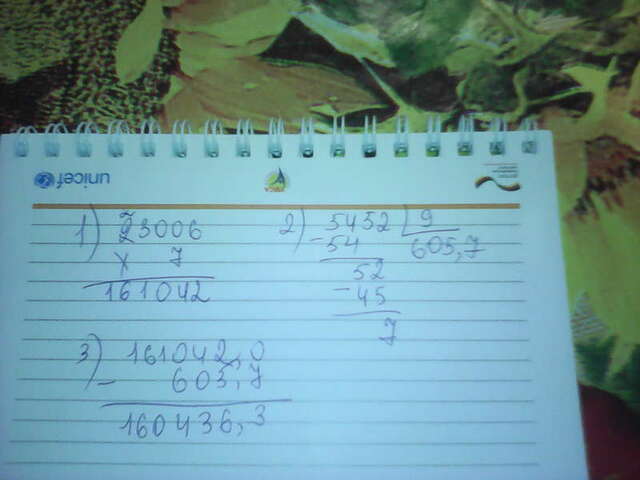 unicef
1) 23006
x 7
161042
2) 5452 9
-54 605,7
52
-45
7
3) 161042,0
- 605,7
160436,3